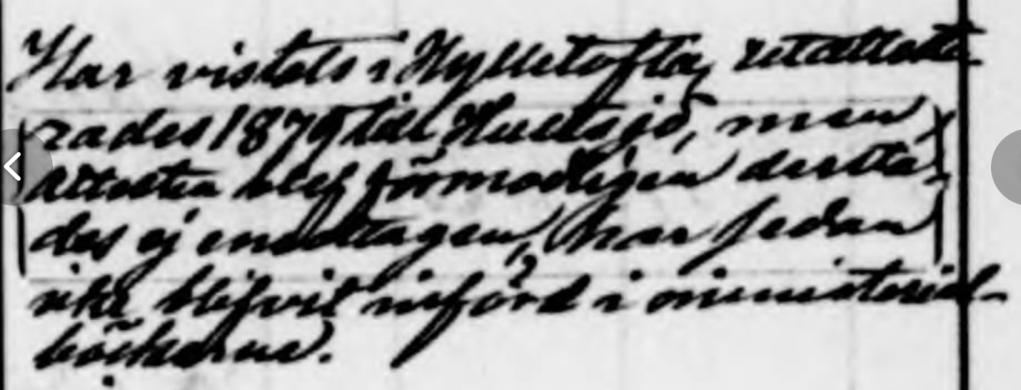 Har vistats i Hylletofta, utattete-
rades 1879 till Hultsjö, men
attesten blef förmodligen dersta-
des ej emottagen, har sedan
icke blifvit införd i ministerial-
böckerne.